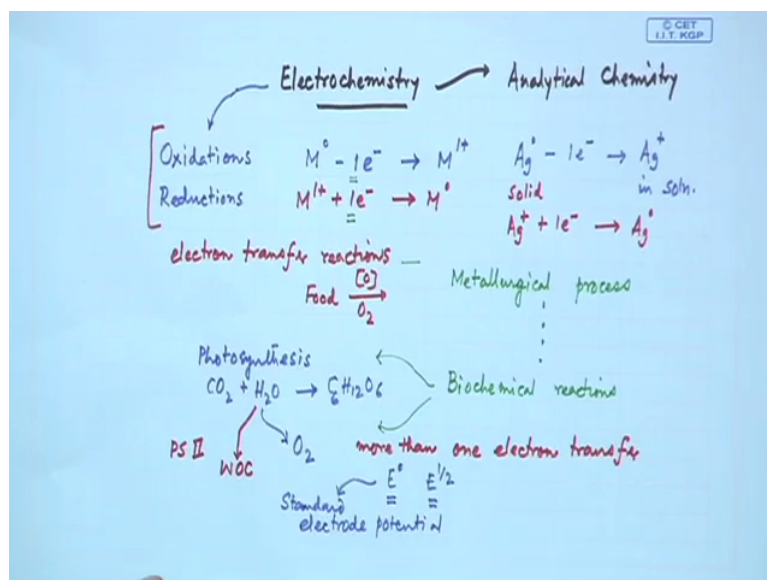 © CET
I.I.T. KGP
Electrochemistry → Analytical Chemistry
Oxidations M⁰ - 1e⁻ → M¹⁺ Ag⁰ - 1e⁻ → Ag⁺
solid in soln.
Reductions M¹⁺ + 1e⁻ → M⁰
Ag⁺ + 1e⁻ → Ag⁰
electron transfer reactions —
Metallurgical process
Food [O] → O₂
Photosynthesis
CO₂ + H₂O → C₆H₁₂O₆
Biochemical reactions
PS II WOC O₂ more than one electron transfer
E⁰ E¹/²
Standard
electrode potential